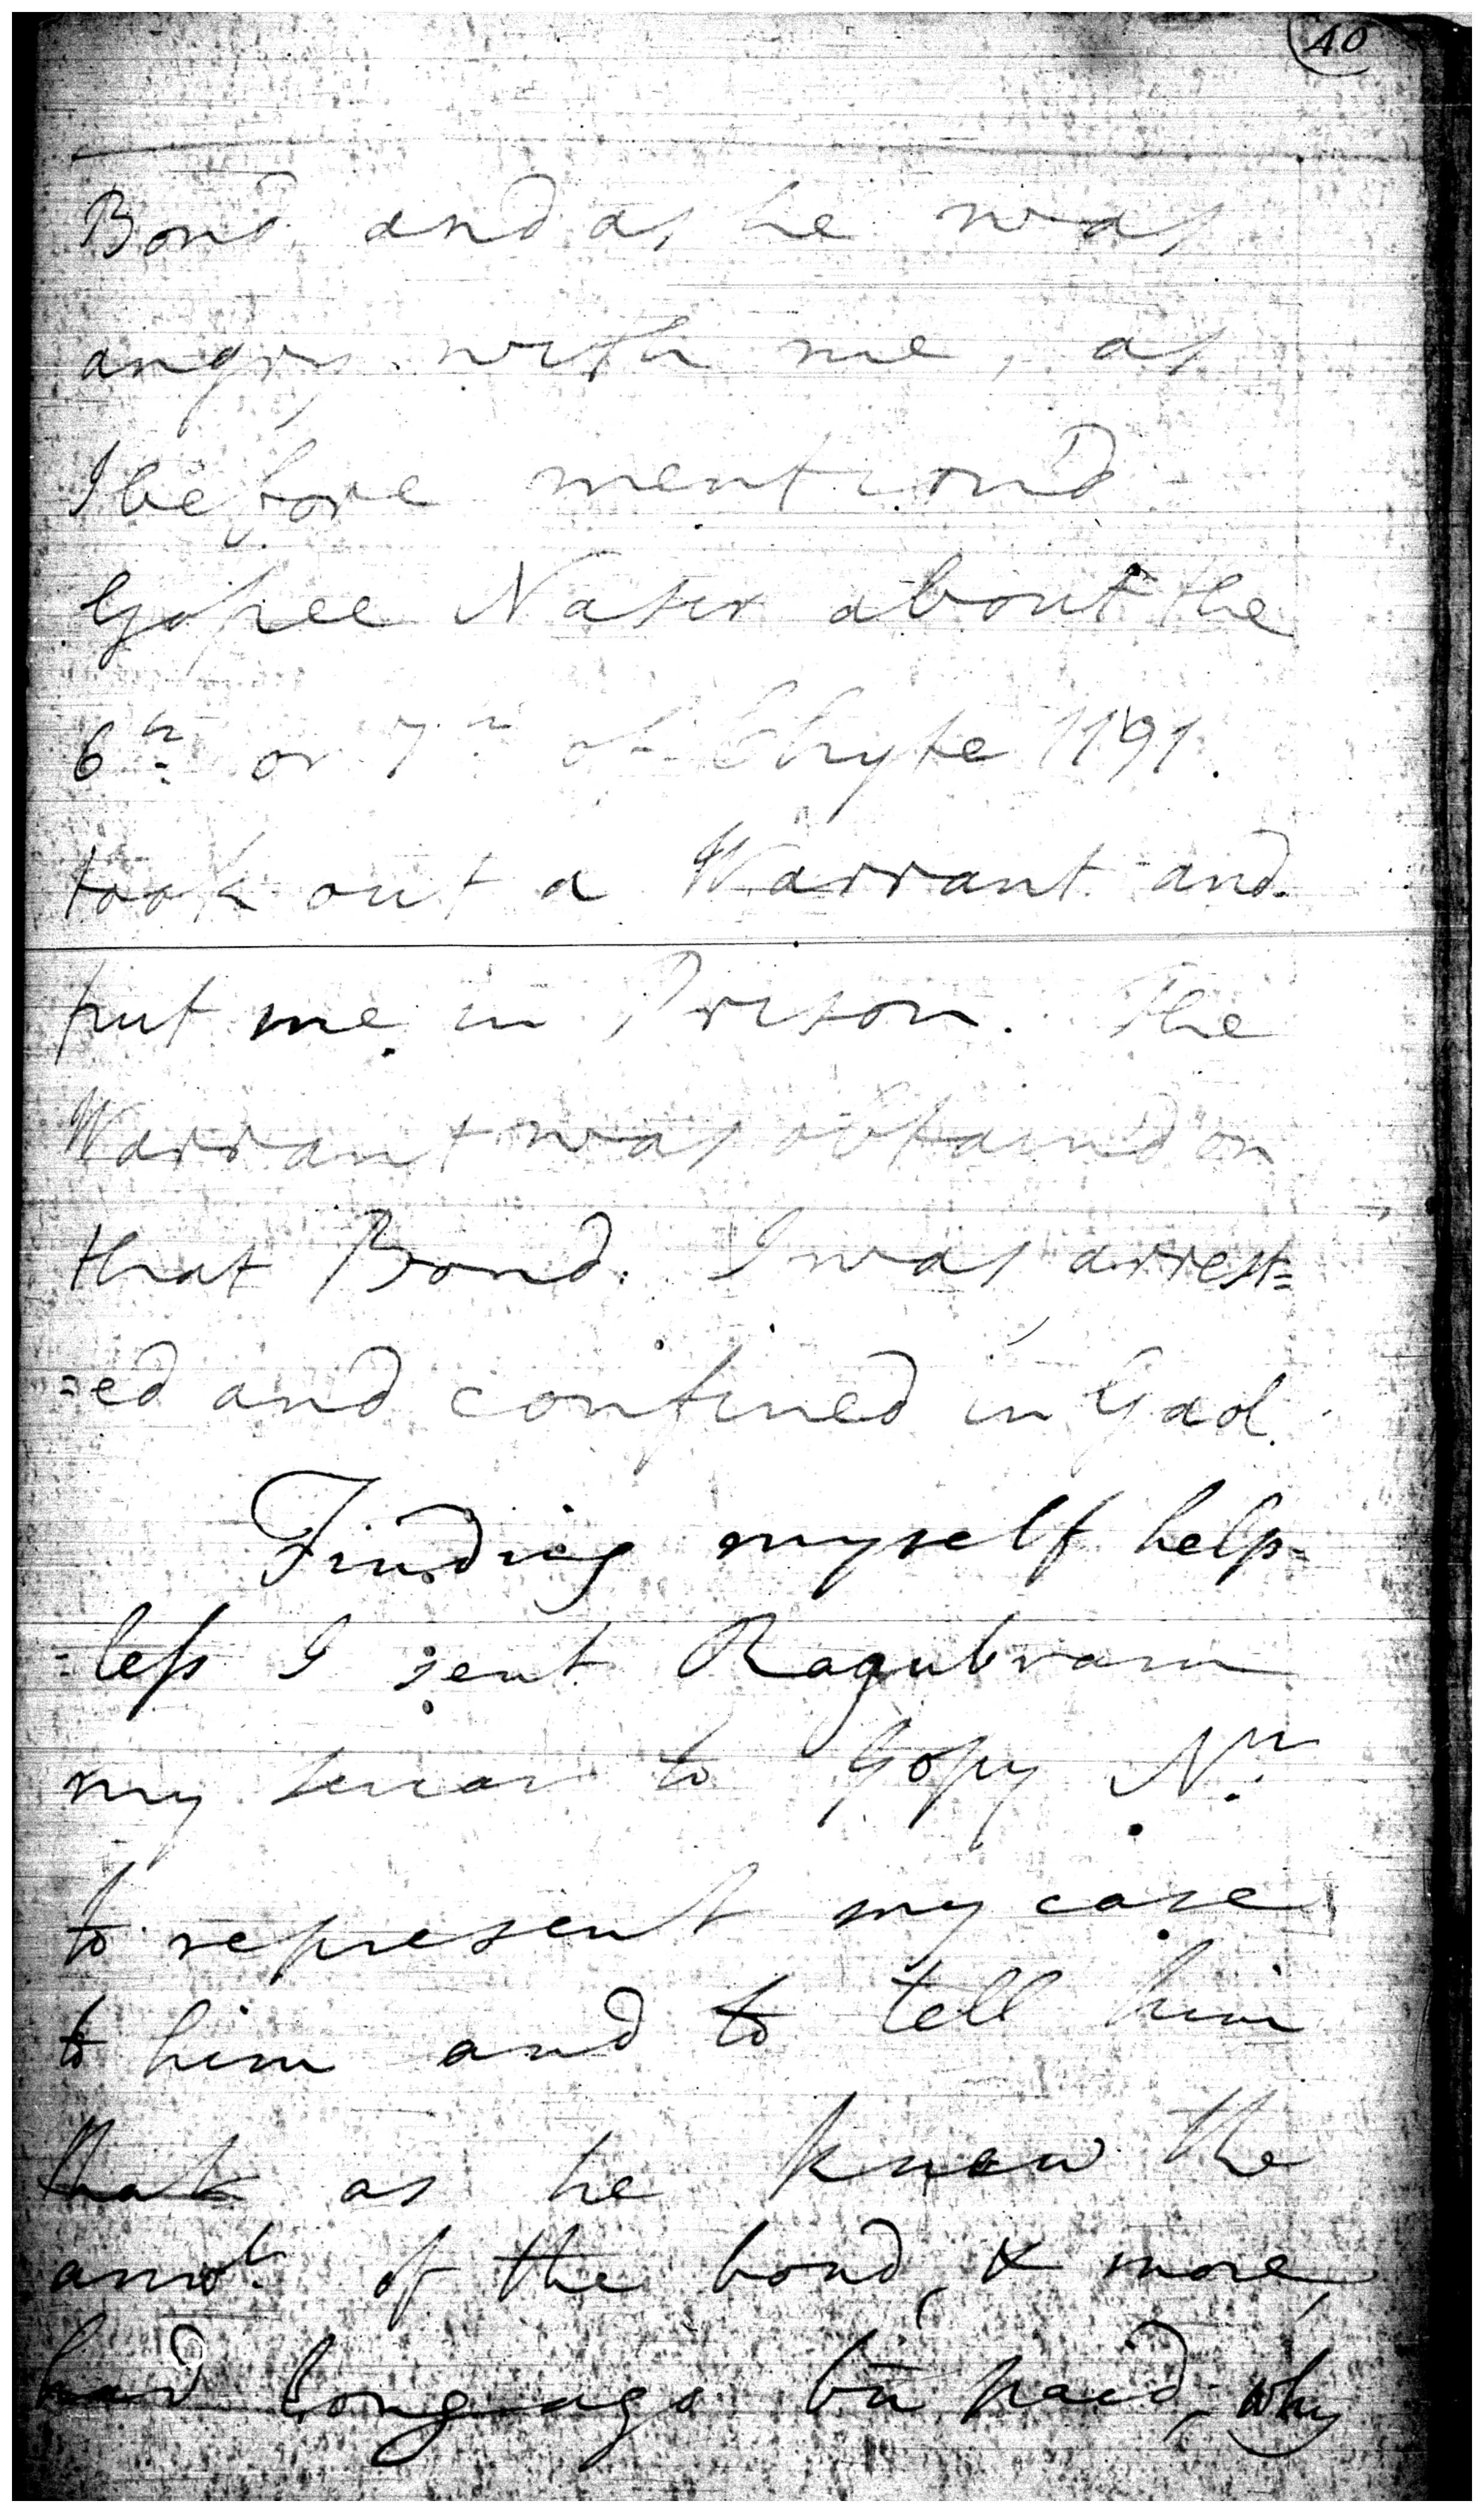 40
Bond and as he was
angry with me, as
I before mention'd
Gopee Nazir about the
6th or 7th of Chyte 1191.
took out a Warrant and
put me in Prison. The
Warrant was obtain'd on
that Bond. I was arrest=
=ed and confined in Gaol.
Finding myself help=
=less I sent Ragubram
my to Gopy Nr.
to represent my case
to him and to tell him
that as he knew the
amot. of the bond, & more,
had long ago bin paid, why